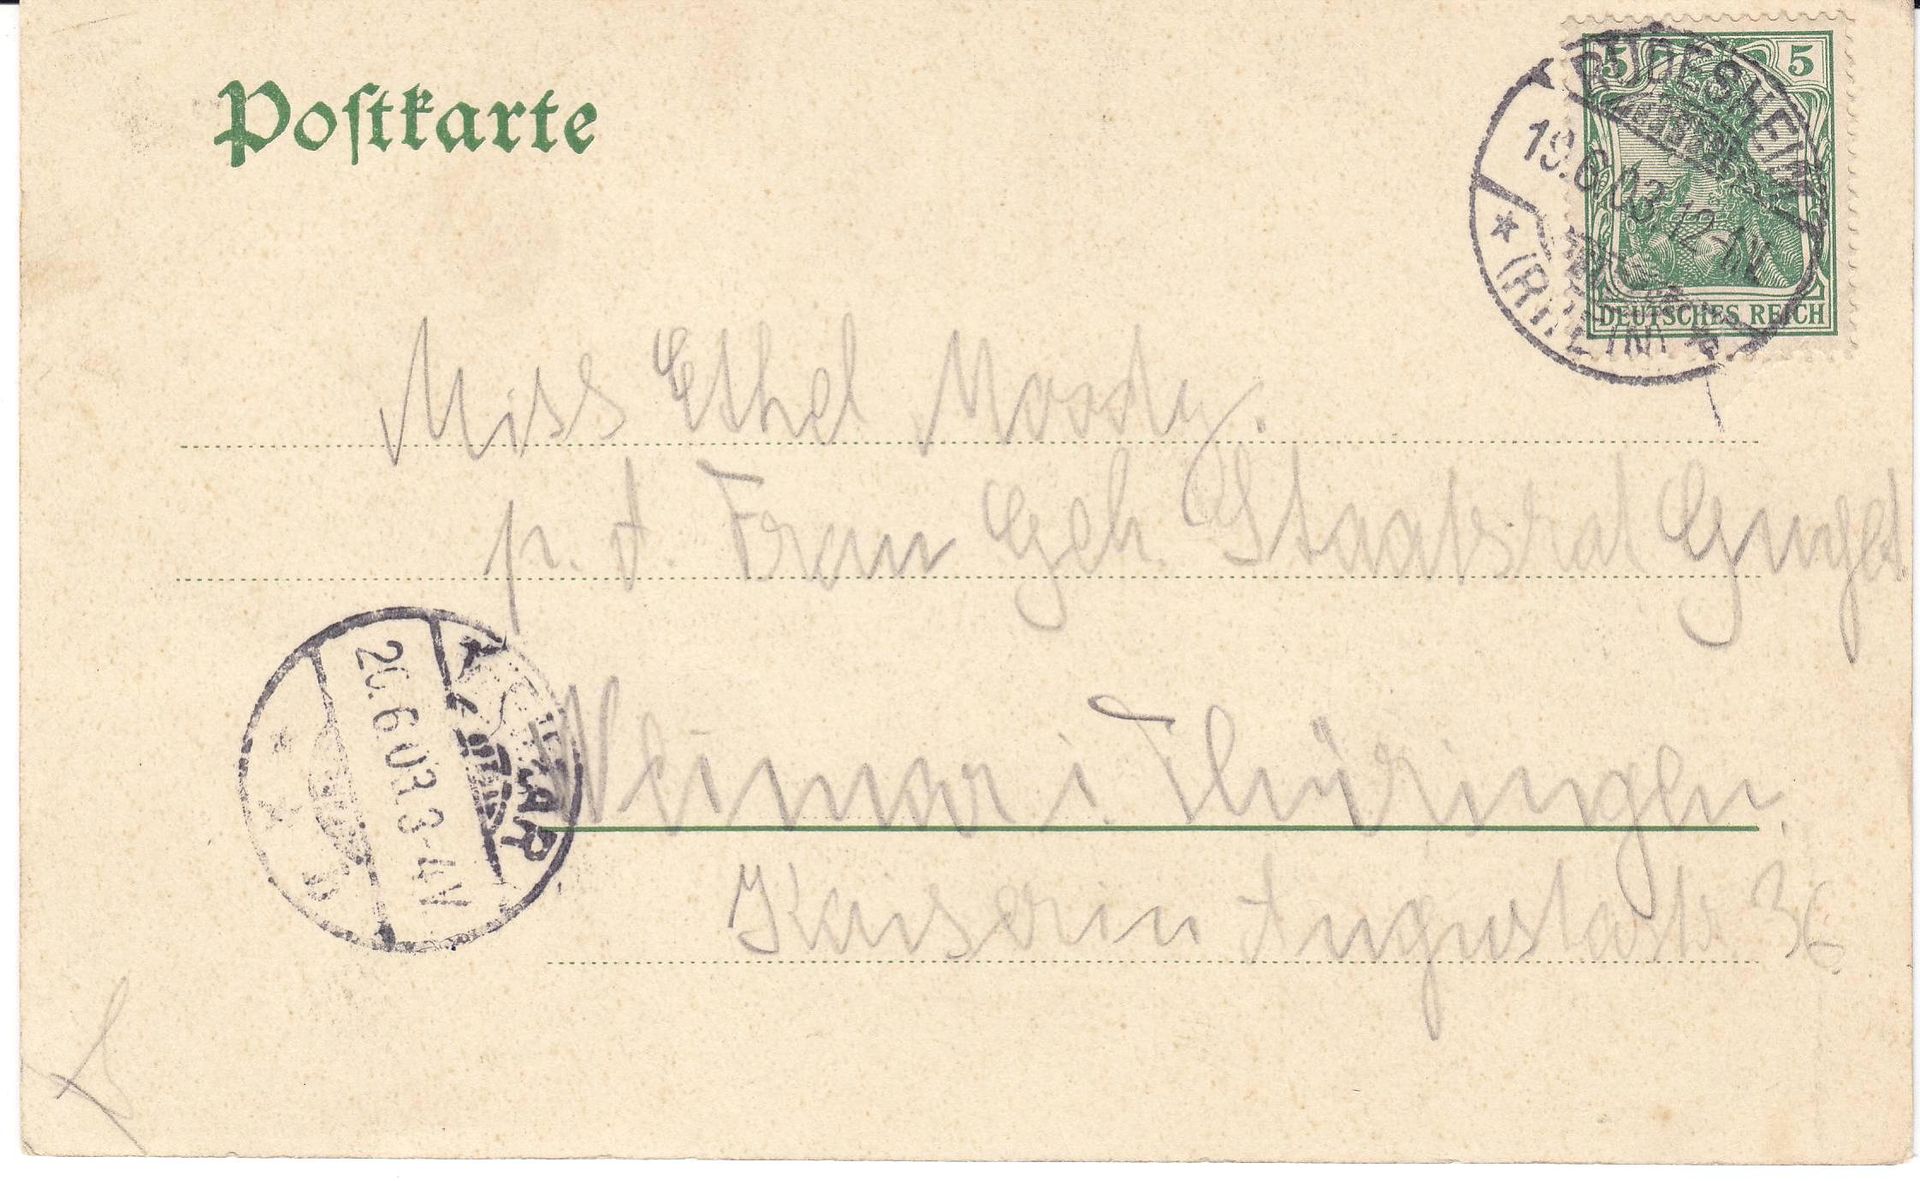 Postkarte
5 5
DEUTSCHES REICH
RÜDESHEIM
19.6.03.12-1N.
* (RHEIN) *
Miss Ethel Moody.
p. A. Frau Geh. Staatsrat
Weimar i. Thüringen.
Kaiserin Augustastr 36
WEIMAR
20.6.03.3-4N